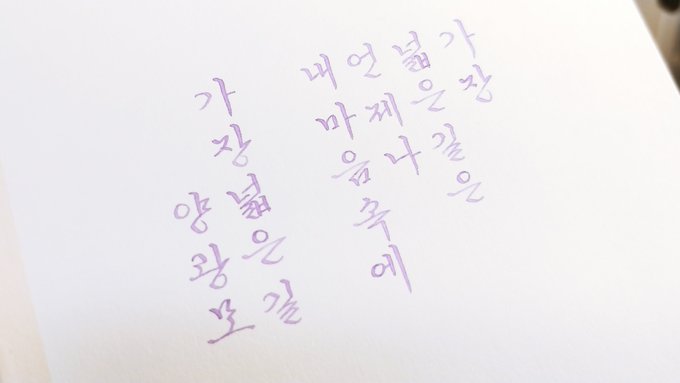 가장
넓은 길은
언제나
내 마음 속에
가장 넓은 길
양광모